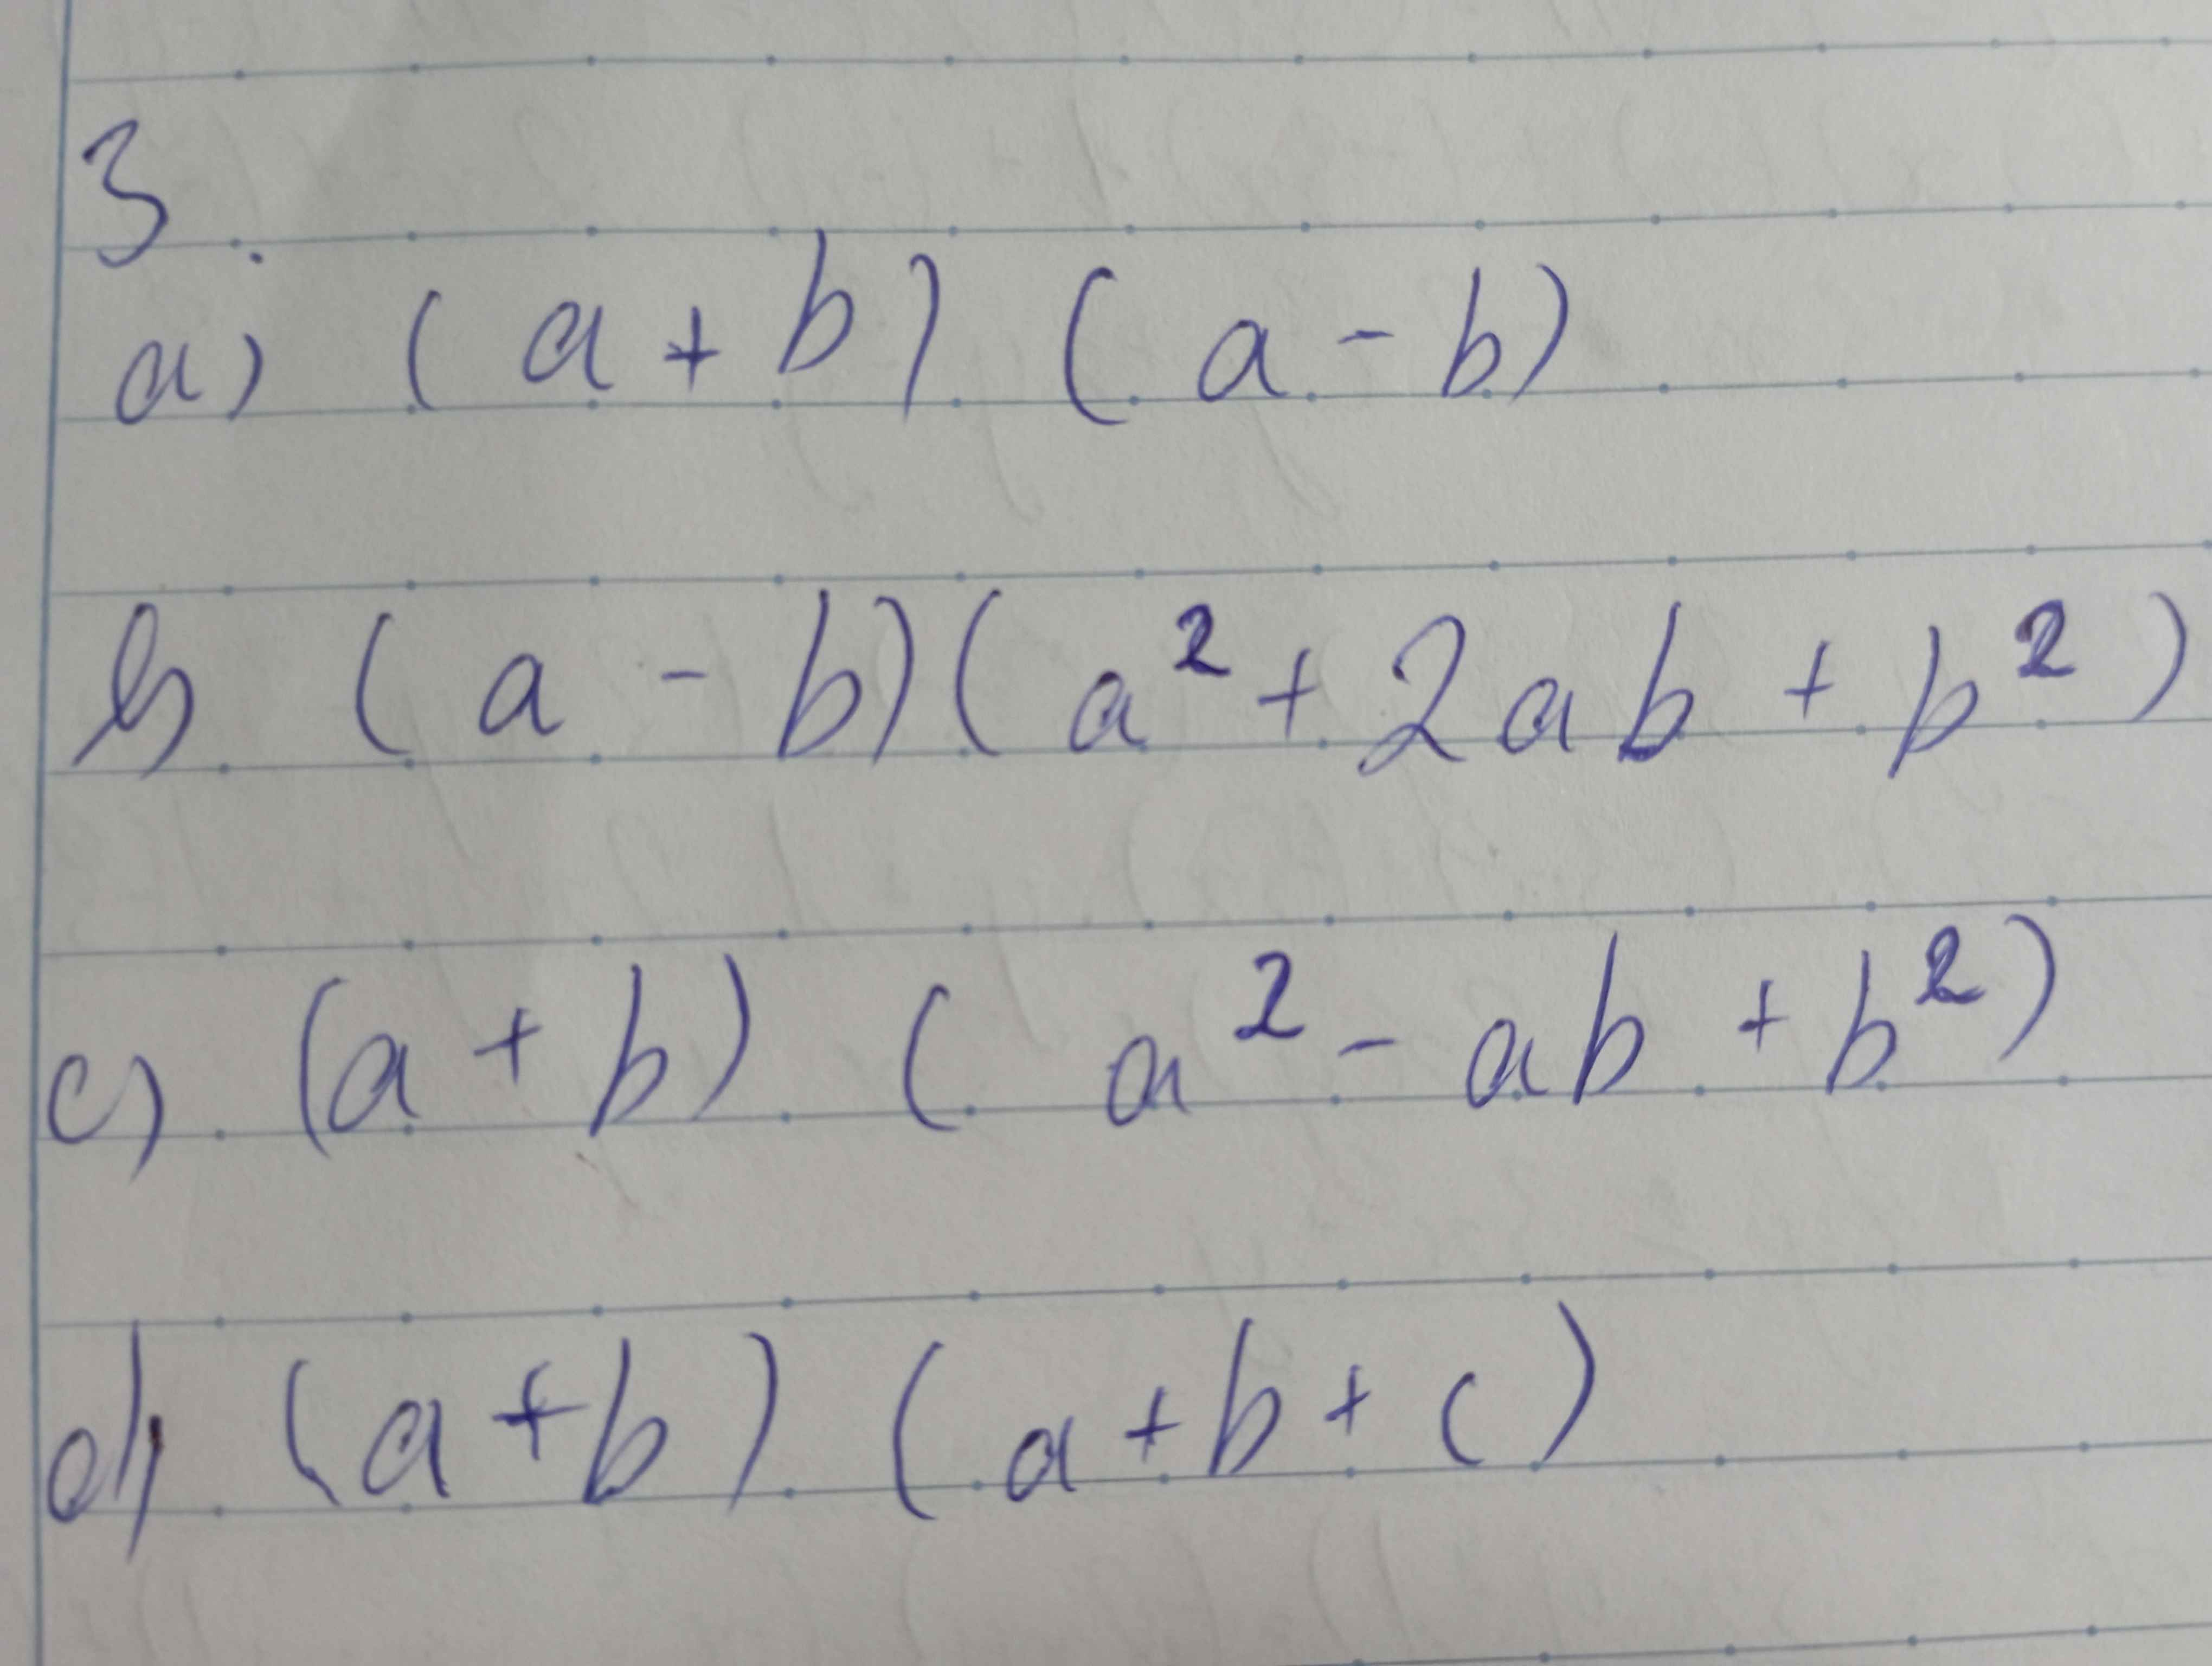 3.
a) (a+b) (a-b)
b (a - b)(a² + 2ab + b²)
c) (a + b) (a² - ab + b²)
d) (a+b) (a+b+c)